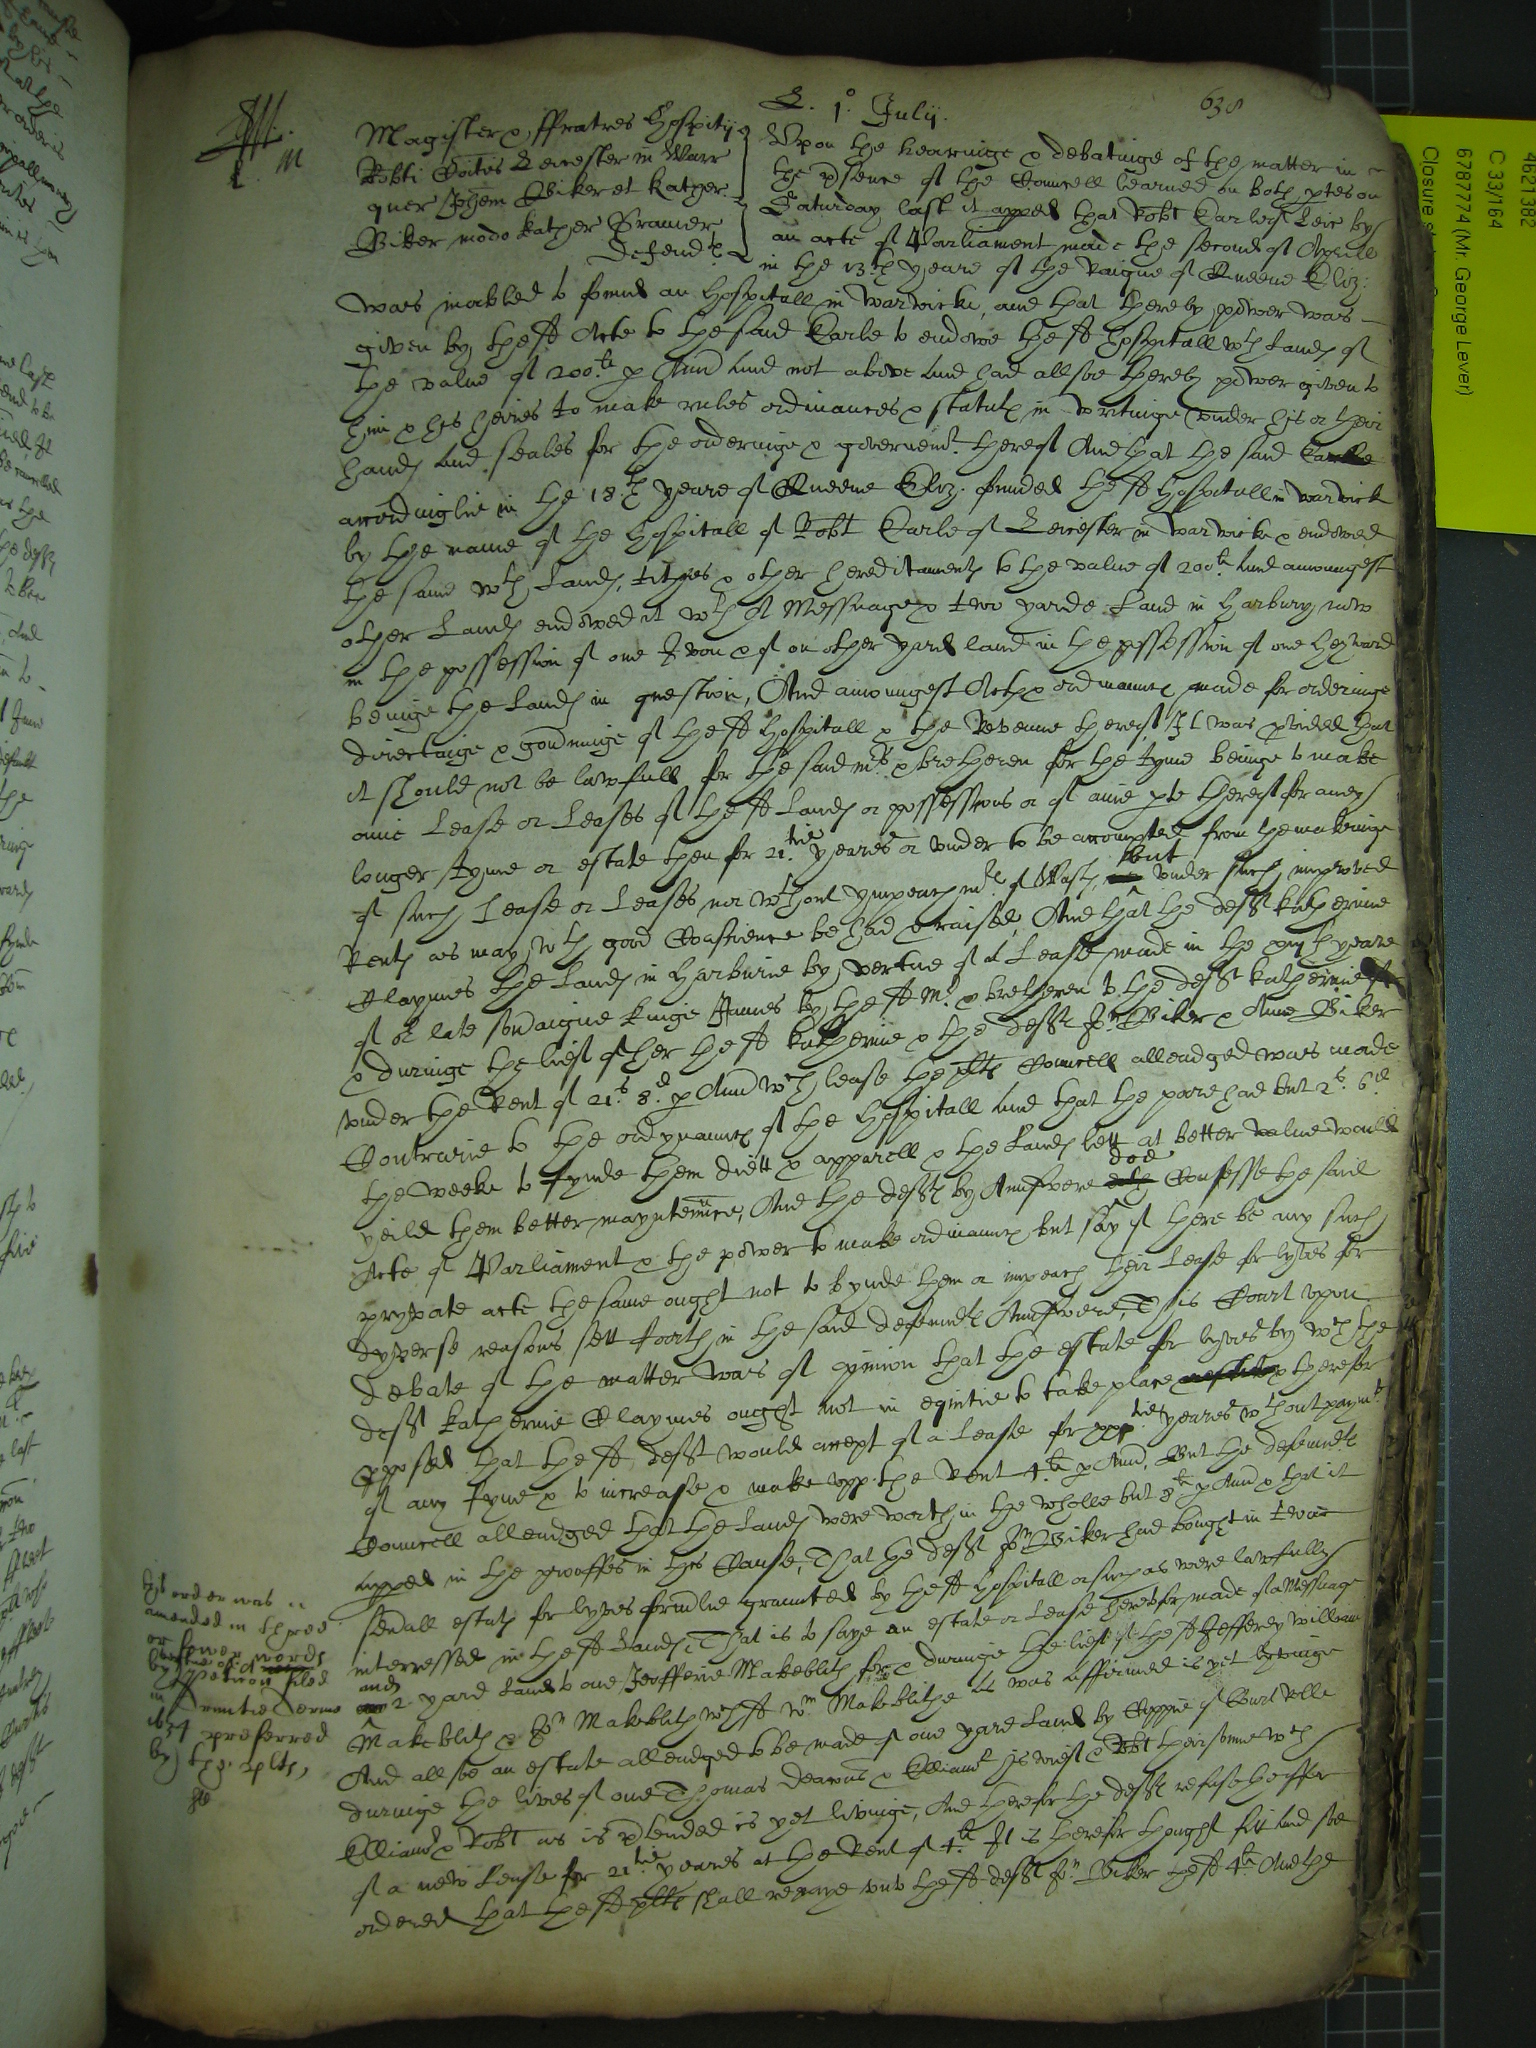 638
L. 1°. Julij.
Magister & ffratres Hospitij
Robti Coitis Leicester in Warr
quer Johem Biker et Kather
Biker modo Kather Cramer
Defendtes
Upon the hearinge & debatinge of the matter in
the psence of the Councell learned on both ptes on
Saturday last it apped that Robt Earle of Leic by
an acte of Parliament made the second of Aprill
in the 13.th yeare of the Raigne of Queene Eliz:
was inabled to found an Hospitall in Warwicke, and that thereby power was
given by the sd Acte to the said Earle to endowe the sd Hospitall wth Lands of
the value of 200.li p Ann and not above And had allsoe thereby power given to
him & his heires to make rules ordinances & statuts in writinge under his or their
hands and seales for the orderinge & governemt. thereof And that the said Earle
accordinglie in the 18.th yeare of Queene Eliz. founded the sd Hospitall in Warwick
by the name of the Hospitall of Robt Earle of Leicester in Warwicke & endowed
the same wth Lands, tithes & other hereditaments to the value of 200.li And amoungest
other Lands endowed it wth A Messuage & two yarde Land in Harbury now
in the possession of one Ivon & of on other yard land in the possession of one Heyward
beinge the Lands in question, And amoungest Acts & ordinances made for orderinge
directinge & govninge of the sd Hospitall & the Revenue thereof It was pvided that
it should not be lawfull for the said mr. & bretheren for the tyme beinge to make
anie Lease or Leases of the sd Lands or possessions or of anie pte thereof for anie
longer tyme or estate then for 21.tie yeares or under to be accompted from the makeinge
of such Lease or Leases nor wthout ympeachmt. of Wast, but under such improved
Rents as may wth good Conscience be had & raised, And that the deft Katherine
Claymes the Lands in Harburie by vertue of A Lease made in the yeare
of or late sovaigne Kinge James by the sd Mr. & bretheren to the deft Katherine
& duringe the lives of her the sd Katherine & the deft Jon Biker & Anne Biker
under the Rent of 21.s 8.d p Ann wch lease the plts Councell alleadged was made
Contrarie to the ordynances of the Hospitall And that the poore had but 2s. 6d
the weeke to fynde them diett & apparell & the Lands lett at better value would
yeild them better mayntennce, And the defts by Answere doe Confesse the said
Acte of Parliament & the power to make ordinances but say if there be any such
pryvate acte the same ought not to bynde them or impeach their Lease for lyves for
dyverse reasons sett foorth in the said defendts Answere, This Court upon
debate of the matter was of opinion that the estate for lyves by wch the
deft Katherine Claymes ought not in equitie to take place & therefor
pposed that the sd deft would accept of a Lease for xxj tie yeares wthout paymt.
of any fyne & to increase & make upp the Rent 4.li p Ann, But the defendts
Councell alleadged that the Lands were worth in the wholle but 8.li p Ann & that it
apped in the prooffes in this Cause, That the deft Jon Biker had bought in twoe
sevall estats for lyves formlie graunted by the sd Hospitall or such as were lawfully
interressed in the sd Lands, That is to saye an estate or Lease heretofor made of a Messuage
and 2 yard Land to one Jeofferie Makeblith for & duringe the lives of the sd Jefferey William
Makeblith & Jon Makeblith wch sd Wm Makeblithe as was affirmed is yet lyvinge
And allsoe an estate alleadged to be made of one yard Land by Coppie of Court Rolle
duringe the lives of one Thomas Deacons & Ellianr his wief & Robt their sonne wch
Ellianr & Robt as is ptended is yet livinge, And therefor the deft refuseth offer
of a new Lease for 21tie yeares at the Rent of 4.li It is therefor thought fitt And soe
ordered that the sd plts shall repaye unto the sd deft Jon Biker the sd 4.li And the
this order was
amended in three
or fower words
by vertue of A
petition filed
in Trinitie terme
1634 preferred
by the plts,